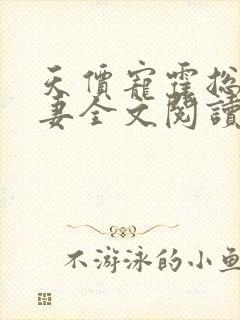 天價寵霆總
妻全文閱讀
不游泳的小魚